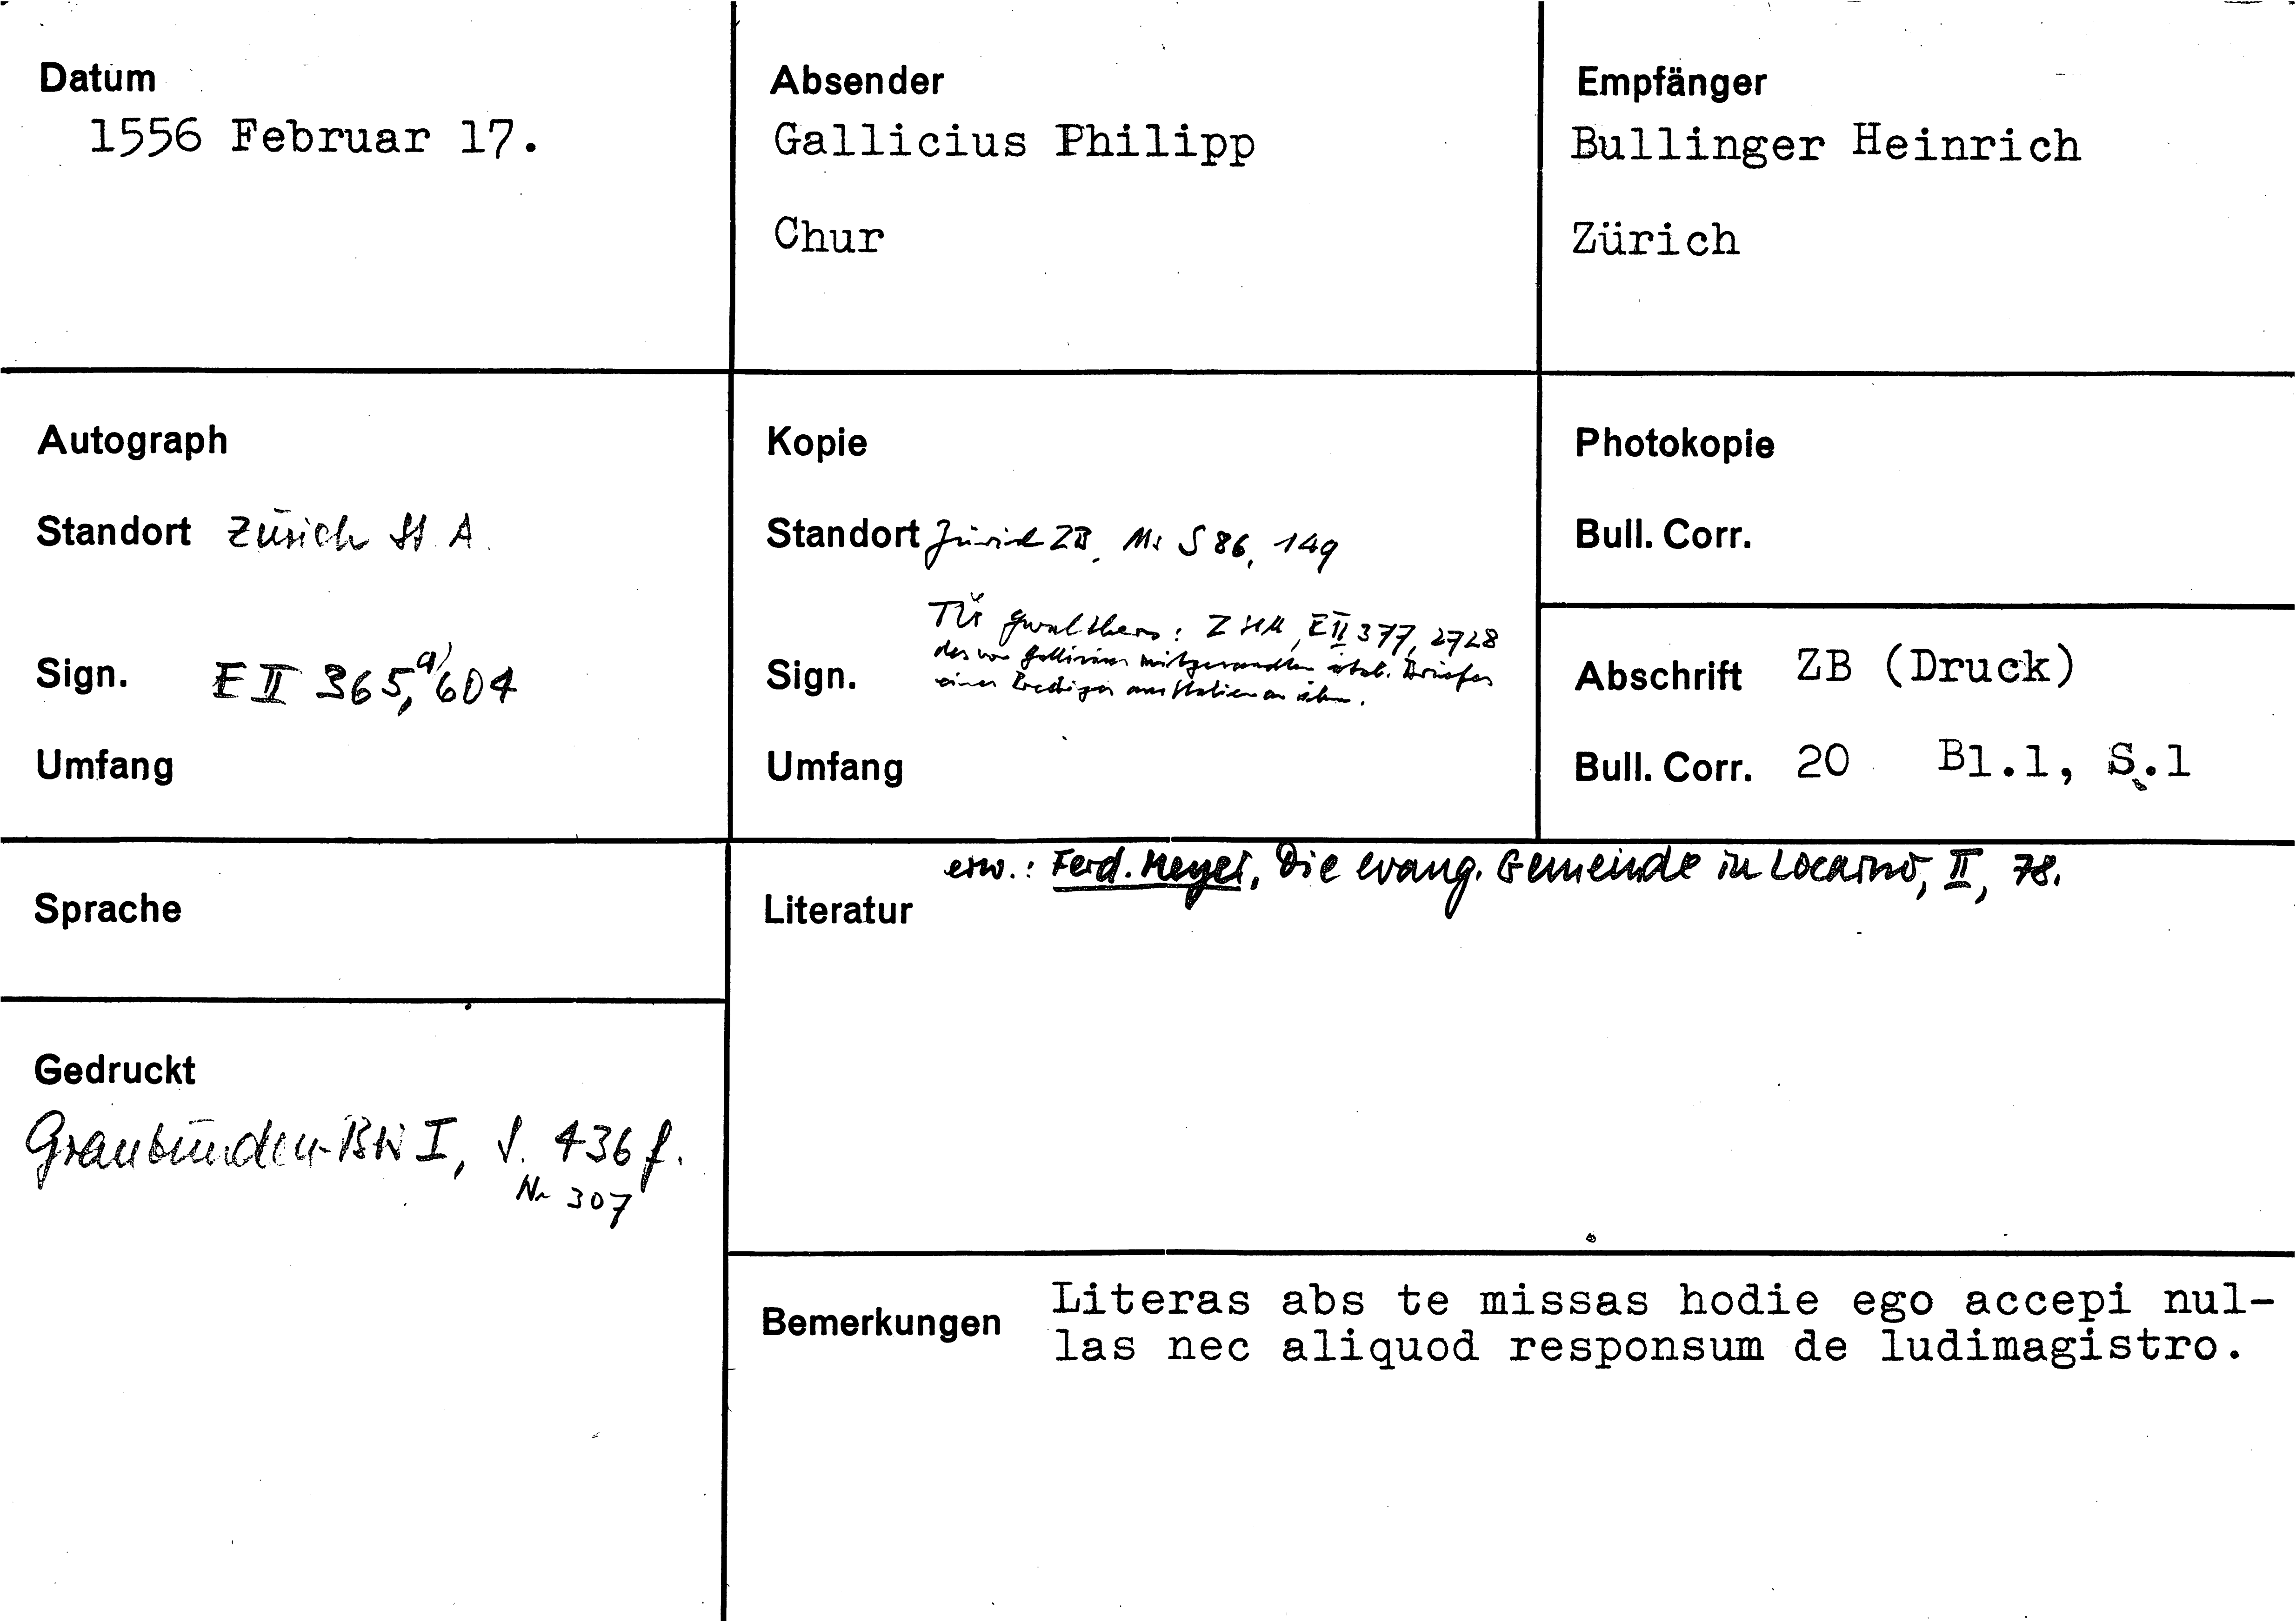 Datum
1556 Februar 17.
Absender
Gallicius Philipp
Chur
Empfänger
Bullinger Heinrich
Zürich
Autograph
Standort Zürich StA.
Sign. E II 365, a) 604
Umfang
Kopie
Standort Zürich ZB, Ms S 86, 149
TÜ Gwalthers: Z StA, E II 377, 2728
des von Gallicius mitgesandten ital. Briefes
Sign. eines Predigers aus Italien an ihn.
Umfang
Photokopie
Bull. Corr.
Abschrift ZB (Druck)
Bull. Corr. 20 Bl.1, S.1
Sprache
Gedruckt
Graubünden-BW I, S. 436 f.
Nr 307
erw.: Ferd. Meyer, Die evang. Gemeinde in Locarno, II, 78.
Literatur
Bemerkungen
Literas abs te missas hodie ego accepi nul-
las nec aliquod responsum de ludimagistro.